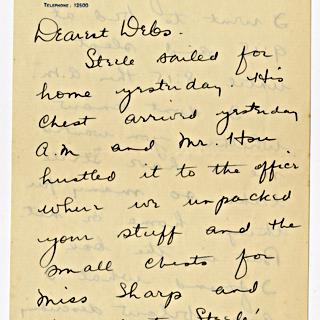 TELEPHONE: 12600
Dearest Debs.
Steele sailed for
home yesterday. His
chest arrived yesterday
A.M and Mr. Hsu
hustled it to the office
wher we unpacked
your stuff and the
small chests for
Miss Sharp and
Steele'